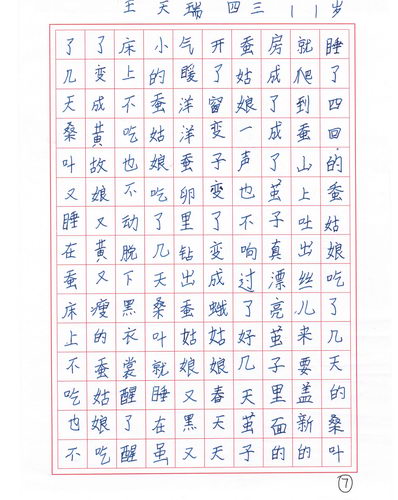 王天瑞 四三 11岁
睡了四回的蚕姑娘吃了几天的桑叶
就爬到蚕山上吐出丝儿来要盖新的
房成了成了茧子真漂亮茧子里面的
蚕姑娘一声也不响过了好几天茧子
开了留变子变了变成蛾姑娘春天天
气暖洋洋蚕卵里钻出蚕姑娘又黑又
小的蚕姑娘吃了几天桑叶就睡在虽
床上不吃也不动脱下黑衣裳醒了醒
了变成黄故娘又黄又瘦的蚕姑娘吃
了几天桑叶又睡在蚕床上不吃也不
7